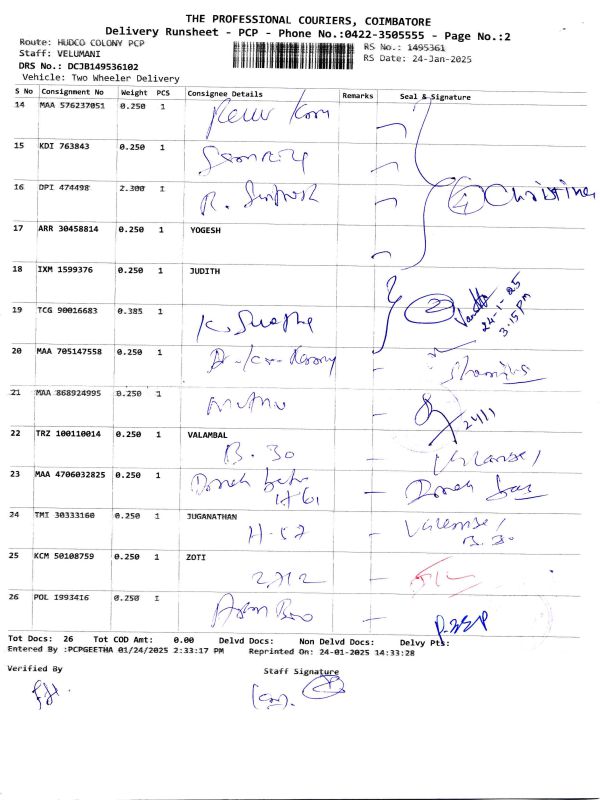 THE PROFESSIONAL COURIERS, COIMBATORE
Delivery Runsheet - PCP - Phone No.:0422-3505555 - Page No.:2
Route: HUDCO COLONY PCP RS No.: 1495361
Staff: VELUMANI RS Date: 24-Jan-2025
DRS No.: DCJB149536102
Vehicle: Two Wheeler Delivery
S No Consignment No Weight PCS Consignee Details Remarks Seal & Signature
14 MAA 576237051 0.250 1
15 KDI 763843 0.250 1
16 DPI 474498 2.300 1 R. Santhosh 4 Christina
17 ARR 30458814 0.250 1 YOGESH
18 IXM 1599376 0.250 1 JUDITH
2 24-1-25
3.15PM
19 TCG 90016683 0.385 1 K. Swapna
20 MAA 705147558 0.250 1
21 MAA 868924995 0.250 1 Muthu 24/1
22 TRZ 100110014 0.250 1 VALAMBAL
B. 30
23 MAA 4706032825 0.250 1
24 TMI 30333160 0.250 1 JUGANATHAN
H-57 B. 30
25 KCM 50108759 0.250 1 ZOTI
26 POL 1993416 0.250 1
Tot Docs: 26 Tot COD Amt: 0.00 Delvd Docs: Non Delvd Docs: Delvy Pts:
Entered By :PCPGEETHA 01/24/2025 2:33:17 PM Reprinted On: 24-01-2025 14:33:28
Verified By Staff Signature